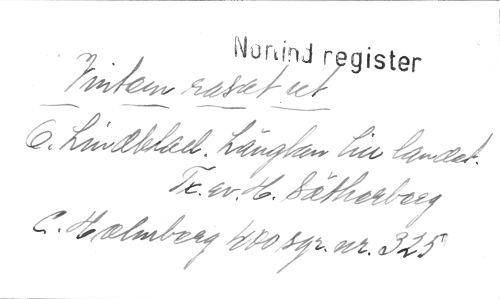 Nonind register
Vintern rasat ut
O. Lindblad. Längtan till landet.
Tx. av. H. Sätherberg
C. Holmberg 400 sgr. nr. 325